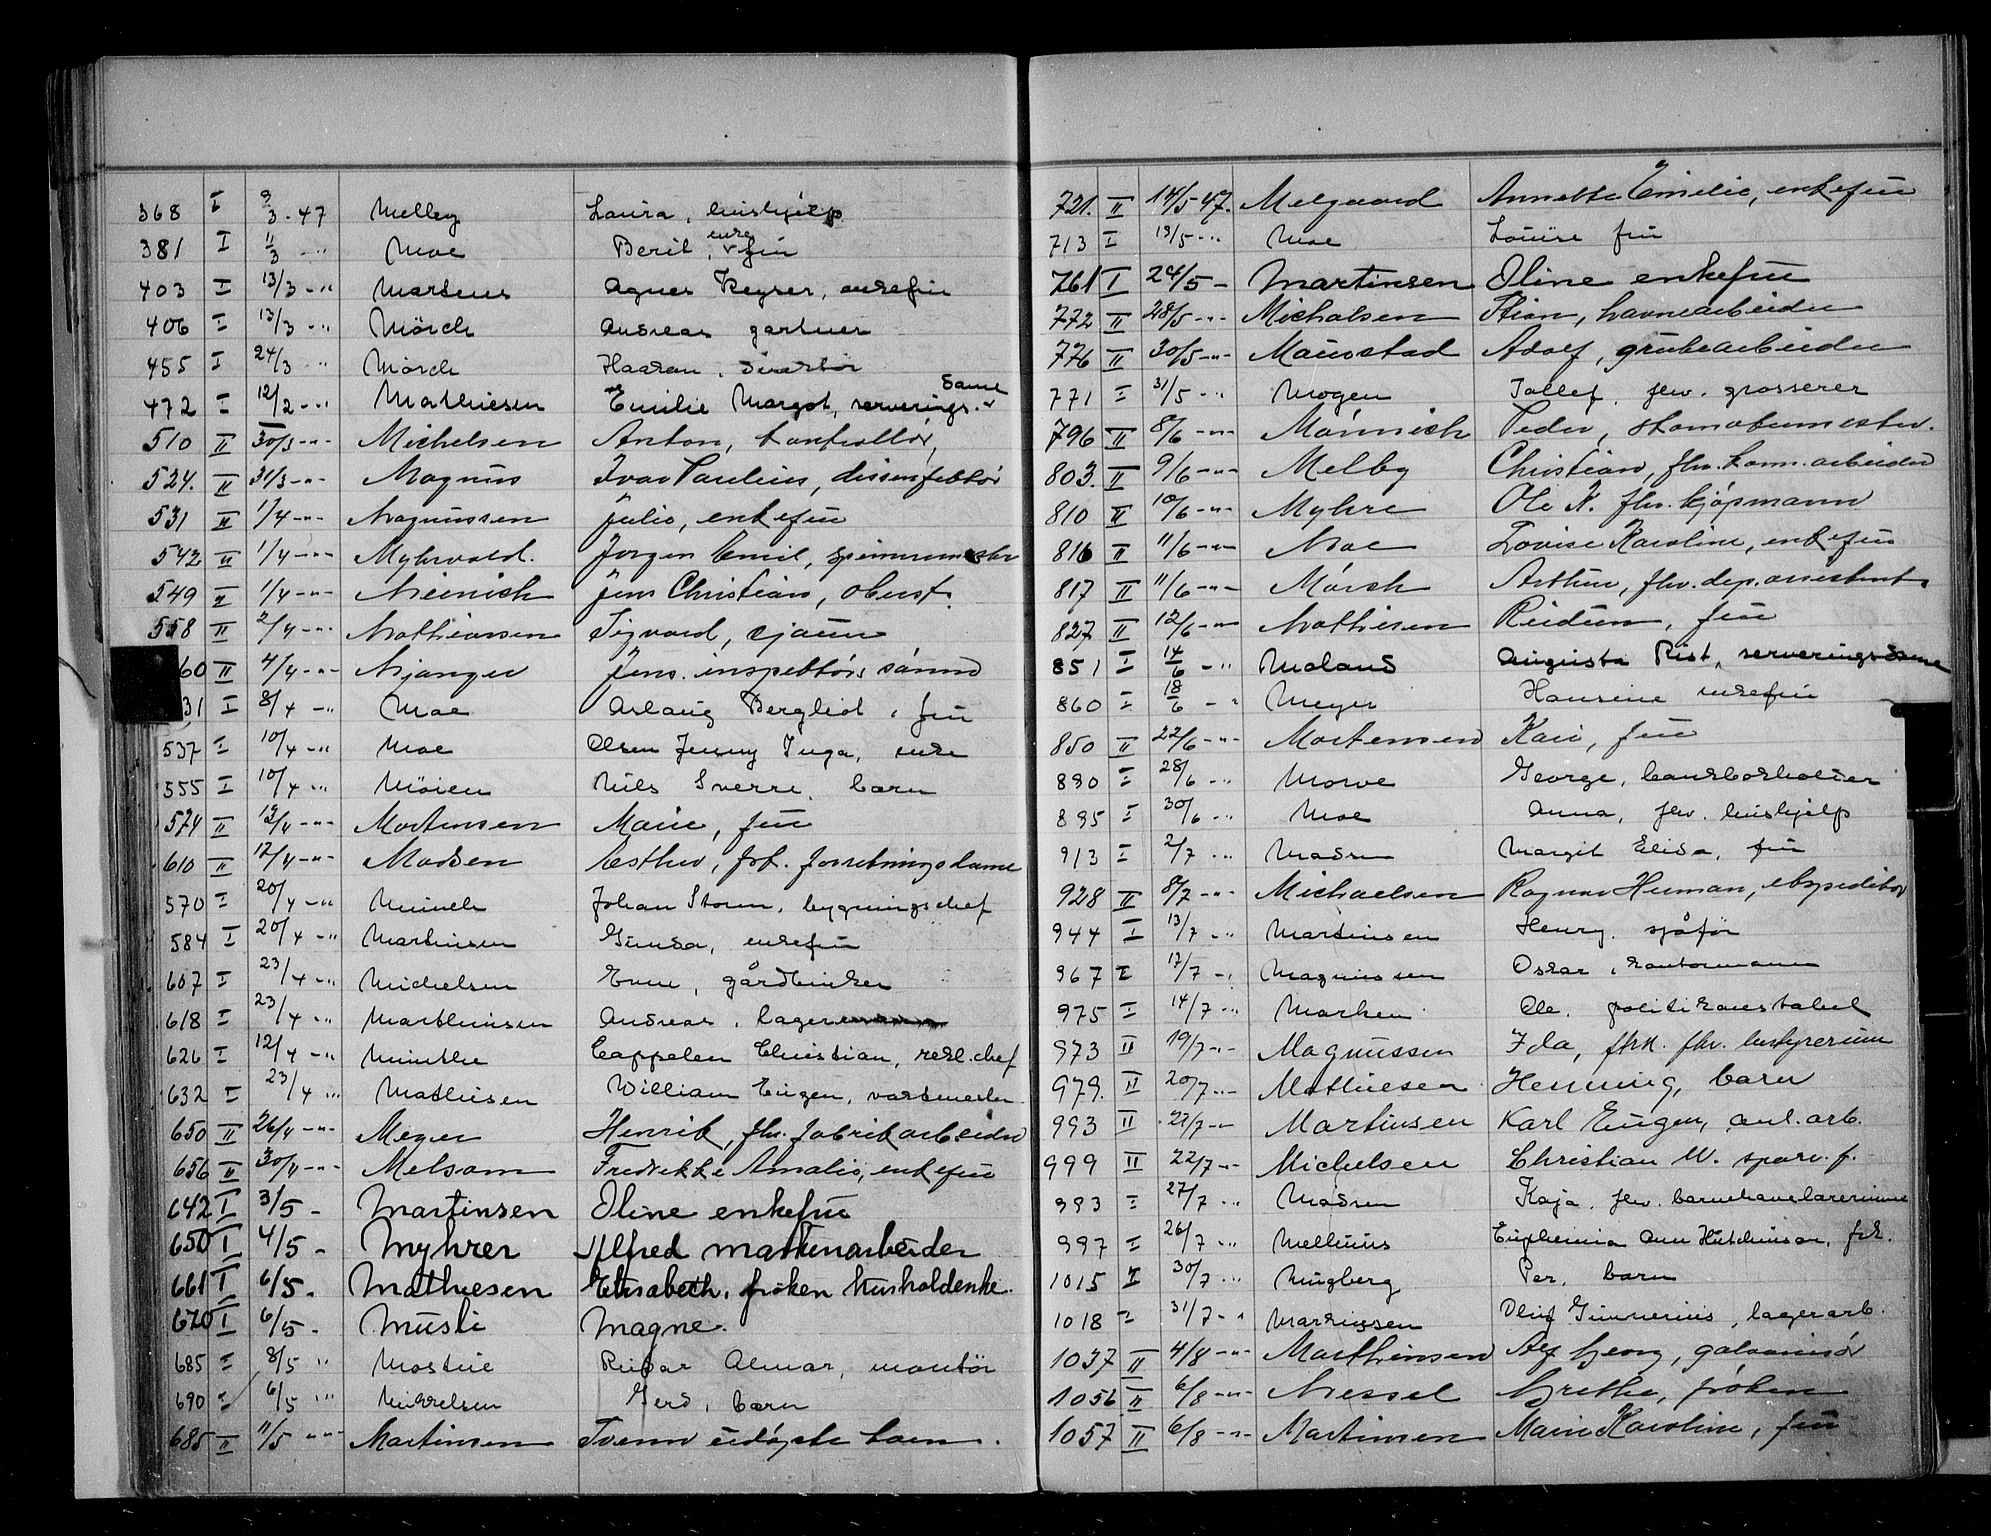 368 I 9/3-47 Melbey Laura, hushjelp
381 I 11/3 -"- Moe Beril, enkefru
403 I 13/3 -"- Martens Agnes Keyser, enkefru
406 I 13/3 -"- Mörch Andreas gartner
455 I 24/3 -"- Mörch Haakon, direktör
472 I 12/2 -"- Mathiesen Emilie Margot, serveringsdame
510 II 30/3 -"- Michelsen Anton, kontrollör,
524. II 31/3 -"- Magnus Ivar Paulius, dissenfektör
531 II 1/4 -"- Magnussen Julie, enkefru
542 II 1/4 -"- Myhrvold. Jørgen Emil, spinnemester
549 II 1/4 -"- Meinich Jens Christian, oberst.
558 II 2/4 -"- Mathiassen Sigvard, sjauer
60 II 4/4 -"- Mjanger Jens. inspektör
31 I 8/4 -"- Moe Aslaug Bergliot, fru
537 I 10/4 -"- Moe Olsen Jenny Inga, enke
555 I 10/4 -"- Möien Nils Sverre, barn
574 II 12/4 -"- Mortensen Marie, fru
610 II 17/4 -"- Madsen Esther, frk. forretningsdame
570 I 20/4 -"- Munch Johan Storm, bygningschef
584 I 20/4 -"- Martinsen Gunda, enkefru
607 I 23/4 -"- Michelsen Even, gårdbruker
618 I 23/4 -"- Marthinsen Andreas, lager
626 I 12/4 -"- Minthe Cappelen Christian, rekl.chef
632 I 23/4 -"- Mathisen William Eugen, vaktmester
650 II 26/4 -"- Meyer Henrik, fhv. fabrikarbeider
656 II 30/4 -"- Melsom Fredrikke Amalie, enkefru
642 I 3/5 - Martinsen Oline enkefru
650 I 4/5 - Myhrer Alfred maskinarbeider
661 I 6/5. Mathiesen Elisabeth, frøken husholderske.
670 I 6/5 - Musli Magne.
685 I 8/5 " Mostue Reidar Almar, montör
690 I 6/5 -"- Mikkelsen Gerd, barn
685 II 11/5 -"- Martinsen Tvenn udøpte barn.
721. II 14/5 47. Melgaard Annette Emelie, enkefru
713 I 13/5 -"- Moe Louise fru
761 I 24/5 - Martinsen Oline enkefru
772 II 28/5 -"- Michalsen Stian, havnearbeider
776 II 30/5 -"- Maustad Adolf, grubearbeider
771 I 31/5 -"- Mogen Tollef. fhv. grosserer
796 II 8/6 -"- Mönnich Peder,
803. II 9/6 -"- Melby Christian, fhv. kom. arbeider
810 II 10/6 -"- Myhre Ole K. fhv. kjøpmann
816 II 11/6 -"- Moe Lovise Karoline, enkefru
817 II 11/6 -"- Mörch Arthur, fhv. dep.assistent
827 II 12/6 -"- Mathisen Reidun, fru
851 I 14/6 -"- Moland Augusta Rist, serveringsdame
860 I 18/6 -"- Meyer Hansine enkefru
850 II 22/6 -"- Mortensen Kari, fru
890 I 28/6 -"- Morve George, bankbokholder
895 I 30/6 -"- Moe Anna, fhv. hushjelp
913 I 2/7 -"- Madsen Margit Elida, fru
928 II 8/7 -"- Michaelsen Ragnar Herman, ekspeditør
944 I 13/7 -"- Martinsen Henry, sjåfør
967 I 17/7 -"- Magnussen Oskar, kontormann
975 I 14/7 -"- Marken Ole, politikonstabel
973 II 19/7 -"- Magnussen Ida, frk. fhv. bestyrerinne
979. II 20/7 -"- Mathiesen Henning, barn
993 II 22/7 -"- Martinsen Karl Eugen, anl.arb.
999 II 22/7 -"- Michelsen Christian W. sporv.f.
993 I 27/7 -"- Madsen Kaja, fhv. barnehavelærerinne
997 I 26/7 -"- Mellbius Euphemia Ann Hutchinson, frk.
1015 I 30/7 -"- Mugberg Per, barn
1018 I 31/7 -"- Markussen Oluf Gunnerius, lagerarb.
1037 II 4/8 -"- Marthinsen Alf Georg, galvanisør
1056 II 6/8 -"- Messel Grethe, frøken
1057 II 6/8 -"- Martinsen Marie Karoline, fru